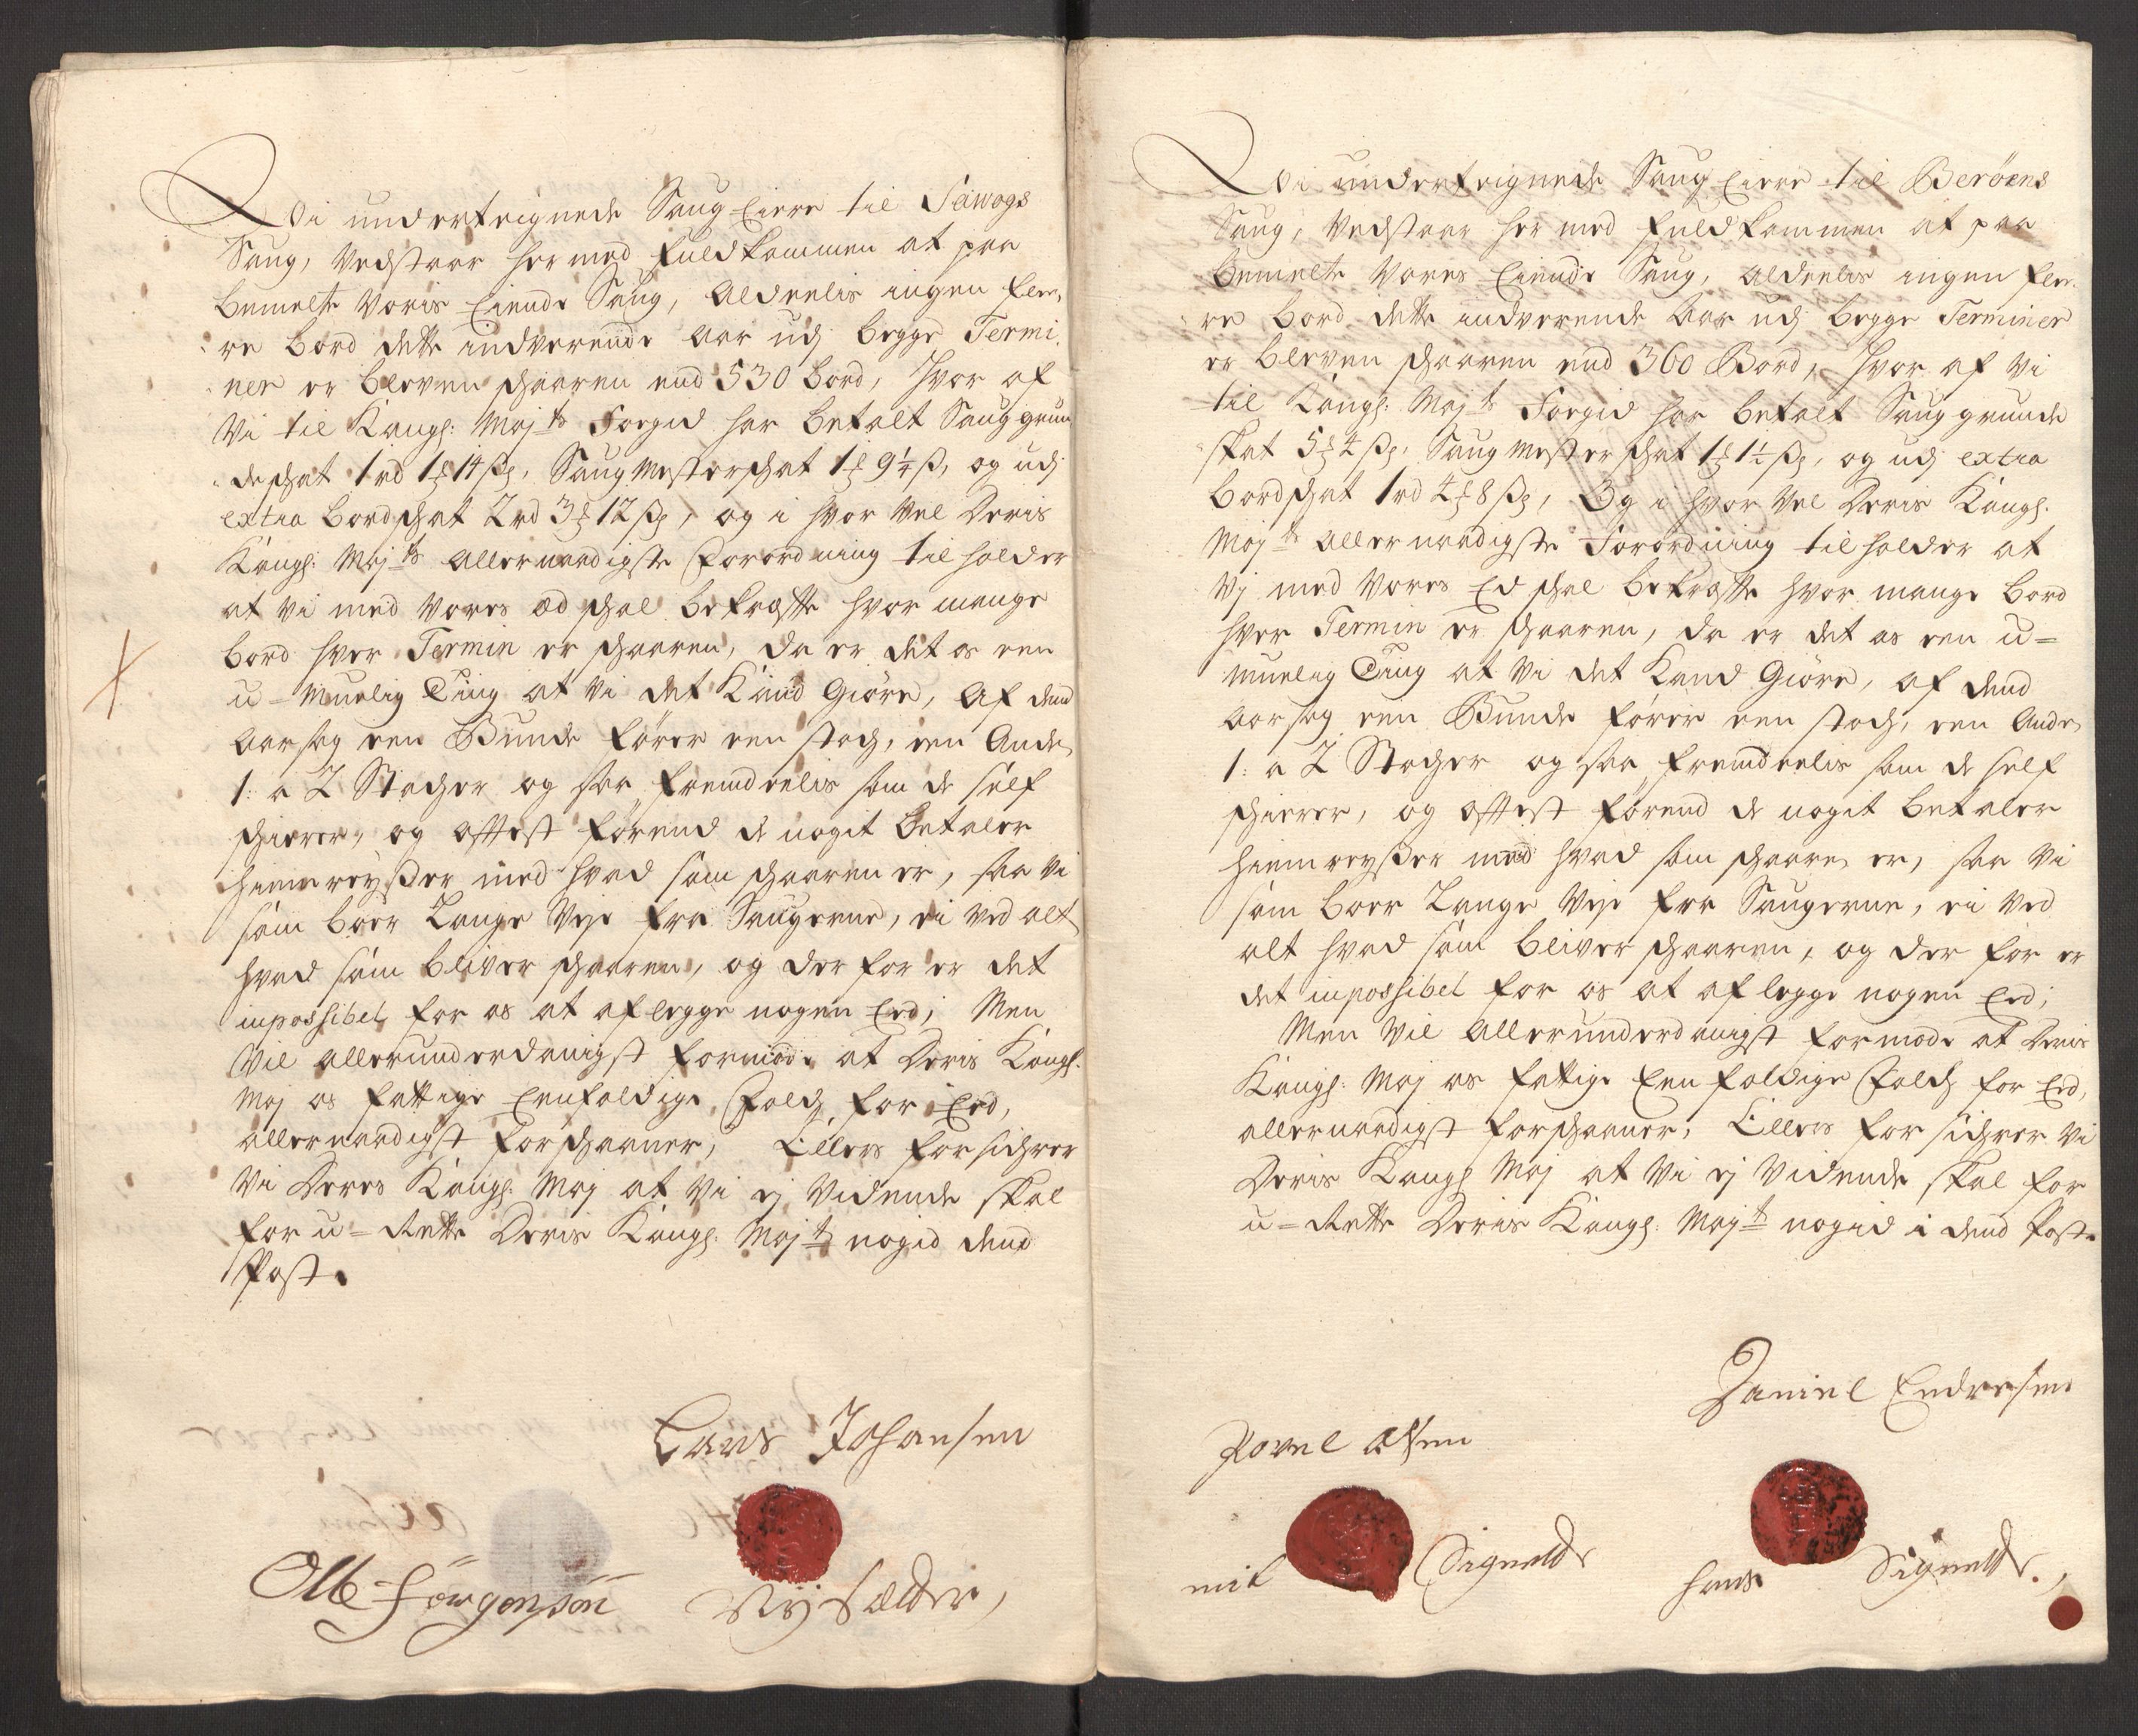 Wi underteignede Saug Eiere til Säwogs
Saug, Vedstaar her med fuldkommen at paa
bemelte Voris Eiende Saug, aldeelis ingen fle¬
re bord dette indverende aar udj begge Termi¬
ner er bleven schaaren end 530 bord, hvor af
Vi til Kongl: Mayts Foegid har betalt Sauggrun
deschat 1 rd 1 ß 14 ße, Saugmesterschat 1 ß 9¼ ß, og udj
extra bordschat 2 rd 3 ß 12 ße, og i hvor vel Deris
Kongl: Mayts allernaadigste Forordning tilholder
at vi med Vores æd schal bekræffte hvor mange
bord hver Termin er schaaren, da er det os een
u-muelig Ting at vi det Kand Giöre, Af dend
aarsag een Bunde förer een stoch, een Anden
1: a 2 Stocher og saa fremdeelis som de self
schierer, og offtest förend de nogit betaler
hiemreyßer med hvad som schaaren er, saa vi
som boer Lange Veje fra Saugerne, ei ved alt
hvad som bliver schaaren, og der for er det
inpossibel for os at aflegge nogen Eed; Men
Vil allerunderdanigst formode at Deris Kongl:
May os fattige Eenfoldige Folch for Eed,
allernaadigst forschaaner, Ellers forsichrer
Vi Deres Kongl: May at Vi ej Vidende skal
for u-Rette Deris Kongl: Mayts nogid dend
Post.
Lars Johansen
Olle Jörgensön
Wi underteignede Saug Eiere til Beröens
Saug, Vedstaar her med fuldkommen at paa
bemelte Vores Eiende Saug, aldeelis ingen fle¬
re bord dette indverende aar udj begge Terminer
er bleven schaaren end 360 Bord, hvor af Vi
til Kongl: Mayts Foegid har betalt Saug grunde
skat 5 ß 4 ße, Saugmesterschat 1 ß 1½ ße, og udj extra
bordschat 1 rd 4 ß 8 ße, Og i hvor vel Deris Kongl:
Mayts allernaadigste Forordning tilholder at
Vj med Vores Ed schal bekræffte hvor mange bord
hver Termin er schaaren, da er det os een u=
muelig Ting at vi det Kand Giöre, af dend
aarsag een Bunde förer een stoch, een Anden
1: a 2 Stocher og saa fremdeelis som de self
schierer, og offtest förend de nogit betaler
hiemreyßer med hvad som schaaren er, saa vi
som boer Lange Veje fra Saugerne, ei ved
alt hvad som bliver schaaren, og der for er
det inpossibel for os at aflegge nogen Eed;
Men Vil allerunderdanigst formode at Deris
Kongl: May os fattige Eenfoldige Folch for Eed,
allernaadigst forschaaner, Ellers forsichrer Vi
Deris Kongl May at Vi ej Vidende skal for
u-Rette Deris Kongl: Mayts nogid i dend Post.
Daniel Endresen
Povel olsen
mit Signette
hans Signette.